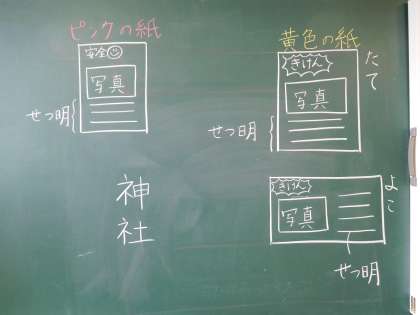 ピンクの紙
安全
写真
せつ明
神社
黄色の紙
たて
きけん
写真
せつ明
よこ
きけん
写真
せつ明